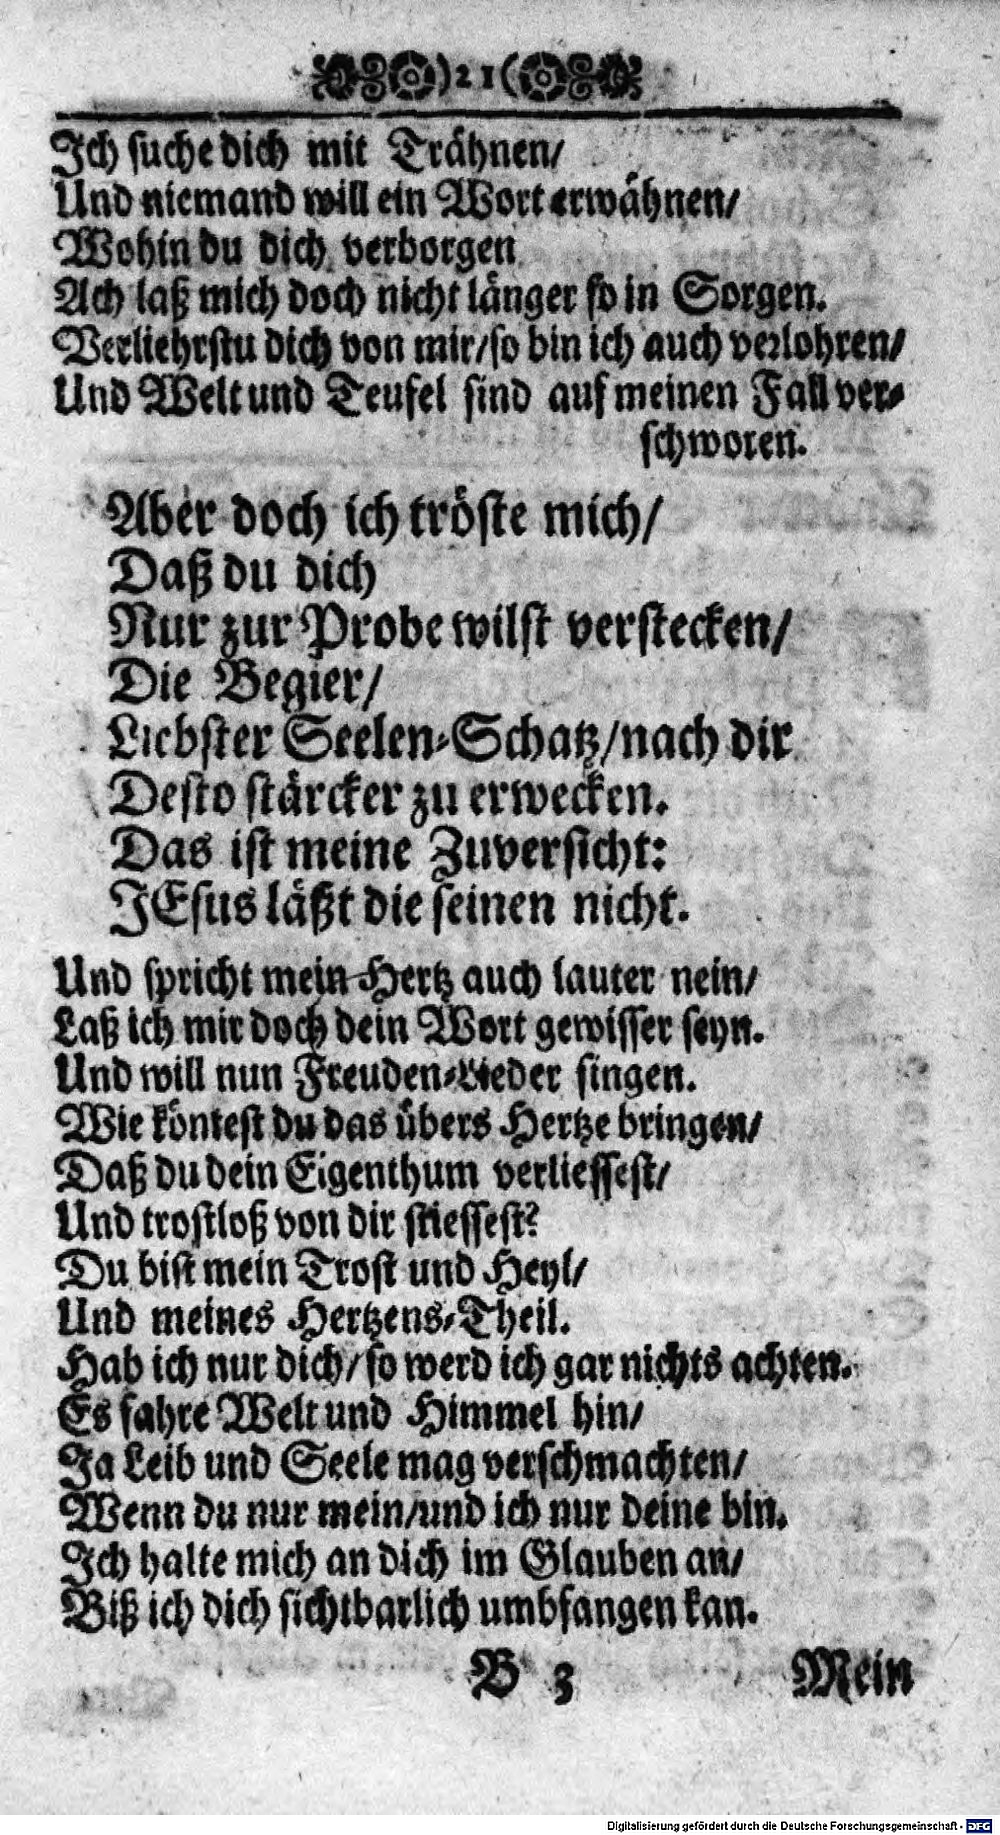 )21(
Ich suche dich mit Trähnen/
Und niemand will ein Wort erwähnen/
Wohin du dich verborgen
Ach laß mich doch nicht länger so in Sorgen.
Verliehrstu dich von mir/so bin ich auch verlohren/
Und Welt und Teufel sind auf meinen Fall ver-
schworen.
Aber doch ich tröste mich/
Daß du dich
Nur zur Probe wilst verstecken/
Die Begier/
Liebster Seelen-Schatz/nach dir
Desto stärcker zu erwecken.
Das ist meine Zuversicht:
JEsus läßt die seinen nicht.
Und spricht mein Hertz auch lauter nein/
Laß ich mir doch dein Wort gewisser seyn.
Und will nun Freuden-Lieder singen.
Wie köntest du das übers Hertze bringen/
Daß du dein Eigenthum verliessest/
Und trostloß von dir stiessest?
Du bist mein Trost und Heyl/
Und meines Hertzens-Theil.
Hab ich nur dich/so werd ich gar nichts achten.
Es fahre Welt und Himmel hin/
Ja Leib und Seele mag verschmachten/
Wenn du nur mein/und ich nur deine bin.
Ich halte mich an dich im Glauben an/
Biß ich dich sichtbarlich umbfangen kan.
B 3 Mein
Digitalisierung gefördert durch die Deutsche Forschungsgemeinschaft - DFG